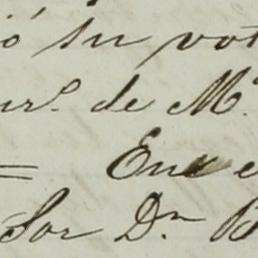 ó su vot
ur.º de M.
= En e
Sor Dn B